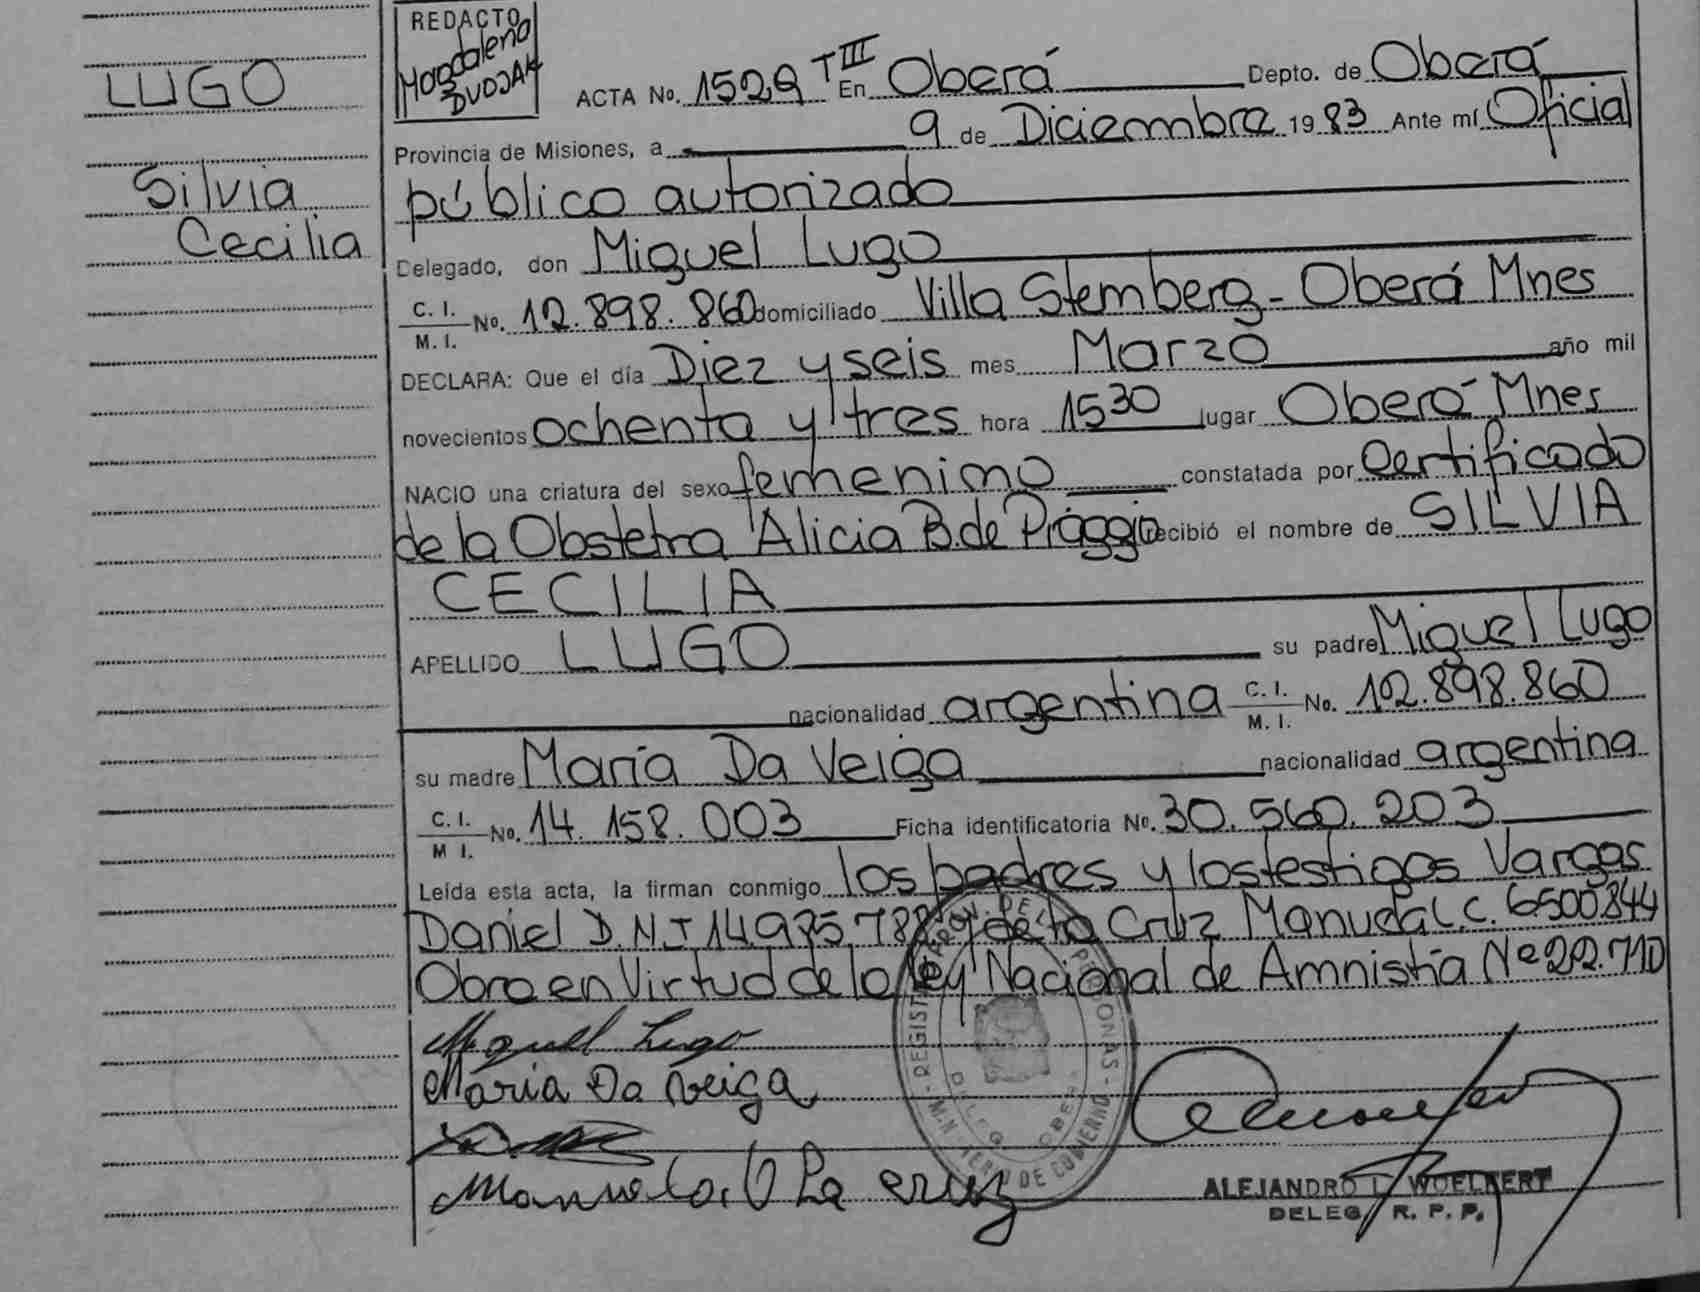 LUGO
Silvia
Cecilia
REDACTO
Magdalena
DUDJAK
ACTA No. 1529 T III En Oberá Depto. de Oberá
Provincia de Misiones, a 9 de Diciembre 19 83 Ante mí Oficial
público autorizado
Delegado, don Miguel Lugo
C. I. / M. I. No. 12.898.860 domiciliado Villa Stemberg - Oberá Mnes
DECLARA: Que el día Diez y seis mes Marzo año mil
novecientos ochenta y tres hora 15 30 lugar Oberá Mnes
NACIO una criatura del sexo femenino constatada por Certificado
de la Obstetra Alicia B. de Piaggio recibió el nombre de SILVIA
CECILIA
APELLIDO LUGO su padre Miguel Lugo
nacionalidad argentina C. I. / M. I. No. 12.898.860
su madre María Da Veiga nacionalidad argentina
C. I. / M I. No. 14.158.003 Ficha identificatoria No. 30.560.203
Leída esta acta, la firman conmigo los padres y los testigos Vargas
Daniel D.N.I 14.975.788 y de la Cruz Manuela L.C. 6500844
Obra en Virtud de la Ley Nacional de Amnistía Nº 22.710
Miguel Lugo
Maria Da Veiga
Manuela. D La cruz
ALEJANDRO WOELFERT
DELEG. R. P. P.